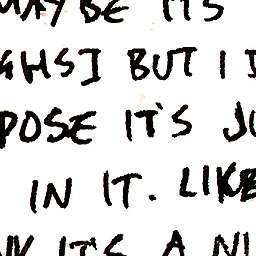 MAYBE IT'S
GHS] BUT I
POSE IT'S JU
IN IT. LIKE
IT'S A NI